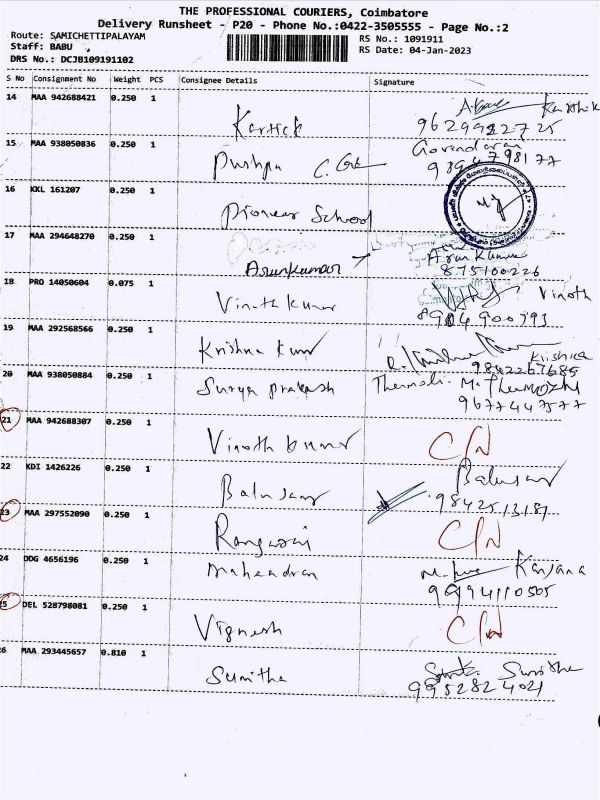 THE PROFESSIONAL COURIERS, Coimbatore
Delivery Runsheet - P20 - Phone No.:0422-3505555 - Page No.:2
Route: SAMICHETTIPALAYAM
RS No.: 1091911
Staff: BABU
RS Date: 04-Jan-2023
DRS No.: DCJB109191102
S No Consignment No Weight PCS Consignee Details Signature
14 MAA 942688421 0.250 1 Kartick Karthik
9629992725
15 MAA 938050836 0.250 1 Pushpa Govindaran
9894798177
16 KKL 161207 0.250 1 Pioneer School
17 MAA 294648270 0.250 1 Arunkumar Arun Kumar
875100226
18 PRO 14050604 0.075 1 Vinoth kumar Vinoth
8904900793
19 MAA 292568566 0.250 1 Krishna kumar Krishna
9842267685
20 MAA 938050884 0.250 1 Surya prakash
9677447577
21 MAA 942688307 0.250 1 Vinoth kumar C/N
22 KDI 1426226 0.250 1 Balusamy Balusamy
9842513187
23 MAA 297552090 0.250 1 Rangasami C/N
24 DDG 4656196 0.250 1 Mahendran Kanjana
9994110505
25 DEL 528798081 0.250 1 Vignesh C/N
26 MAA 293445657 0.810 1 Sunitha Sunitha
9952824021